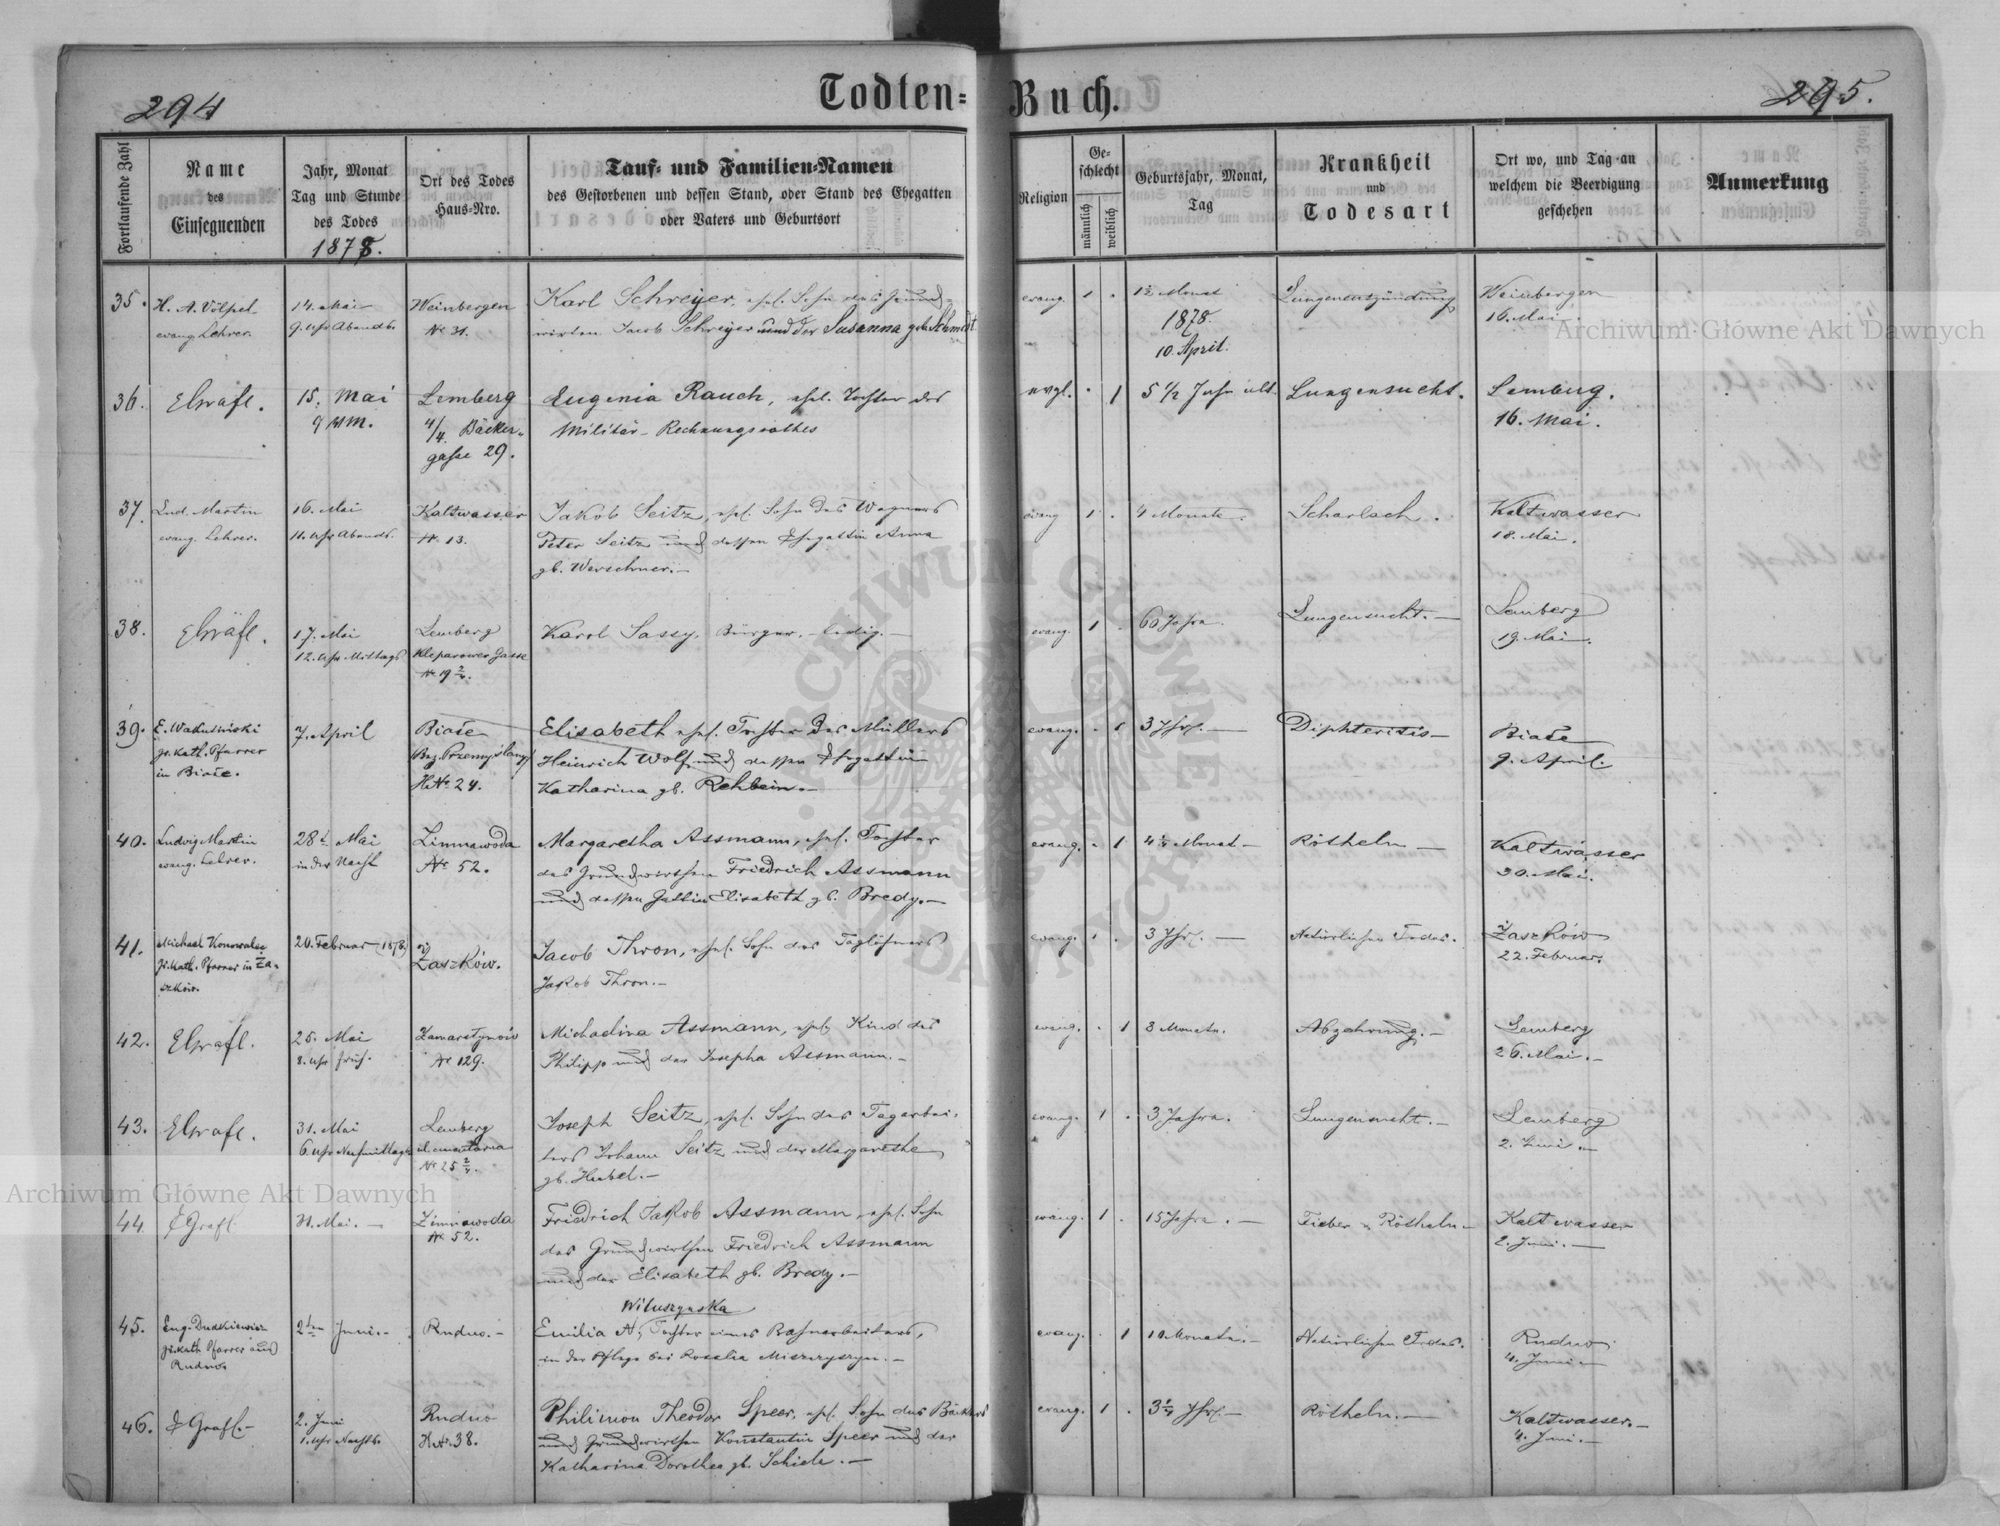 294
Todten-Buch.
295.
Fortlaufende Zahl
Name
des
Einsegnenden
Jahr, Monat
Tag und Stunde
des Todes
1878.
Ort des Todes
Haus-Nro.
Tauf- und Familien-Namen
des Gestorbenen und dessen Stand, oder Stand des Ehegatten
oder Vaters und Geburtsort
Religion
Ge-
schlecht
männlich
weiblich
Geburtsjahr, Monat,
Tag
Krankheit
und
Todesart
Ort wo, und Tag an
welchem die Beerdigung
geschehen
Anmerkung
35. H. A. Völpel 14. Mai Weinbergen Karl Schreyer, ehel. Sohn des Grund- evang. 1 . 1½ Monat Lungenentzündung Weinbergen
evang. Lehrer. 9. Uhr Abends. No 31. wirthen Jacob Schreyer und der Susanna geb. Schmidt 1878. 16. Mai.
10. April.
36. EGrafl. 15. Mai Lemberg Eugenia Rauch, ehel. Tochter des evgl. . 1 5 1/2 Jahr alt Lungensucht. Lemberg.
9 Uhr M. 4/4. Bäcker- Militär-Rechnungsrathes 16. Mai.
gasse 29.
37. Lud. Martin 16. Mai Kaltwasser Jakob Seitz, ehel. Sohn des Wagners evang 1 . 4 Monate. Scharlach. Kaltwasser
evang. Lehrer. 11. Uhr Abends. No 13. Peter Seitz und dessen Ehegattin Anna 18. Mai.
gb. Werschner.-
38. EGrafl. 17. Mai Lemberg Karol Sassy, Bürger, - ledig.- evang. 1 . 60 Jahre. Lungensucht.- Lemberg
12. Uhr Mittags Kleparower Gasse 19. Mai.
No 19 2/4.
39. gr. kath. Pfarrer 7. April Białe Elisabeth ehel. Tochter des Müllers evang. . 1 3 Jhr.- Diphteritis- Białe
in Białe. Bez. Przemyślany Heinrich Wolf und dessen Ehegattin 9. April.
H No 24. Katharina gb. Rehbein.-
40. Ludwig Martin 28t. Mai Zimnawoda Margaretha Assmann, ehel. Tochter evang. . 1 4½ Monat- Rötheln- Kaltwasser
evang. Lehrer. in der Nacht No 52. des Grundwirthen Friedrich Assmann 30. Mai.
und dessen Gattin Elisabeth gb. Bredy.-
41. Michael Konowalec 20. Februar (1878) Zaszków. Jacob Thron, ehel. Sohn des Taglöhners evang. 1 . 3 Jhr.- Natürlichen Todes. Zaszków
gr. kath. Pfarrer in Za- Jakob Thron.- 22. Februar.
szków.
42. EGrafl. 25. Mai Zamarstynów Michaelina Assmann, ehel. Kind des evang. . 1 3 Monate. Abzehrung.- Lemberg
8. Uhr früh. No 129. Philipp und der Josepha Assmann.- 26. Mai.-
43. EGrafl. 31. Mai Lemberg Joseph Seitz, ehel. Sohn des Tagarbei- evang. 1 . 3 Jahre. Lungensucht.- Lemberg
6. Uhr Nachmittags No 25 2/4. ters Johann Seitz und der Margarethe 2. Juni.-
gb. Hubel.-
44. EGrafl. 31. Mai.- Zimnawoda Friedrich Jakob Assmann, ehel. Sohn evang. 1 . 15 Jahre.- Fieber u. Rötheln- Kaltwasser-
No 52. des Grundwirthen Friedrich Assmann 2. Juni.-
und der Elisabeth gb. Bredy.-
Wituszynska
45. Eug. Dudkiewicz 2ten Juni.- Rudno.- Emilia A, Tochter eines Bahnarbeiters, evang. . 1 10 Monate.- Natürlichen Todes. Rudno
gr. kath Pfarrer aus in der Pflege bei Rosalia 4. Juni.-
Rudno.
46. EGrafl.- 2. Juni Rudno Philimon Theodor Speer, ehel. Sohn des Bäckers evang. 1 . 3¼ Jhr.- Rötheln.- Kaltwasser.-
1. Uhr Nachts. H No. 38. und Grundwirthen Konstantin Speer und der 4. Juni.-
Katharina Dorothea gb. Schick.-
Archiwum Główne Akt Dawnych
Archiwum Główne Akt Dawnych
ARCHIWUM GŁÓWNE AKT DAWNYCH